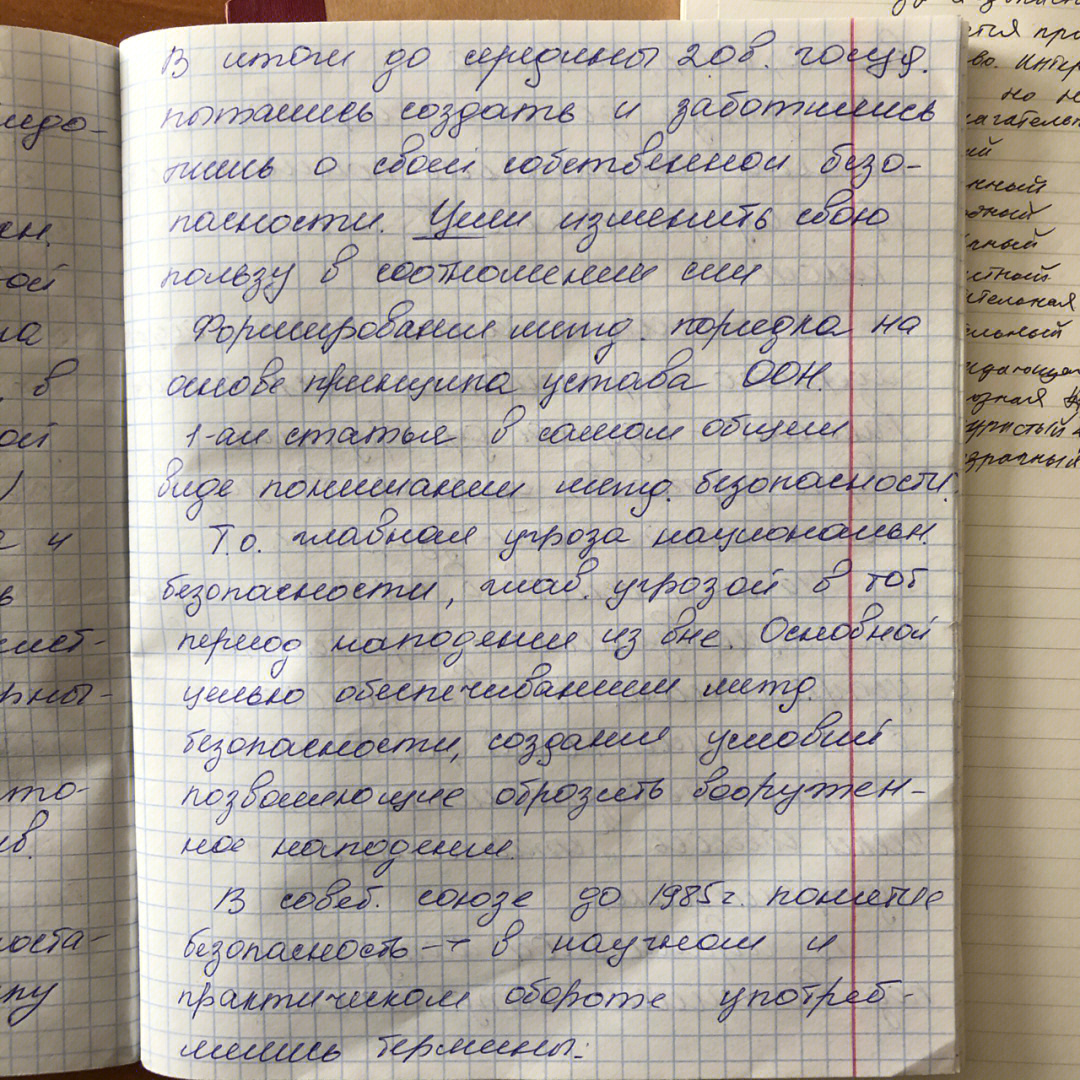 В итоги до середины 20в. госуд.
пытались создать и заботились
лись о своей собственной безо-
пасности. Цели изменить свою
пользу в соотношении сил
Формирования межд. порядка на
основе принципа устава ООН.
1-ая статья в самом общем
виде понимании межд. безопасность.
Т.о. главная угроза национальн.
безопасности, глав. угрозой в тот
период нападении из вне. Основной
целью обеспечиваниям межд.
безопасности, создании условий
позволяющие отрозить вооружен-
ное нападении.
В совет. союзе до 1985г. понятие
безопасность → в научном и
практичиком обороте употреб-
лились термины:
ледо-
ен.
ой
ла
в
ой
)
и
в
рны-
то-
ив.
поста-
пу
но н
ий
нный
дный
чный
стный
ительная
ельный
идающ
озная
уристый
зрачный